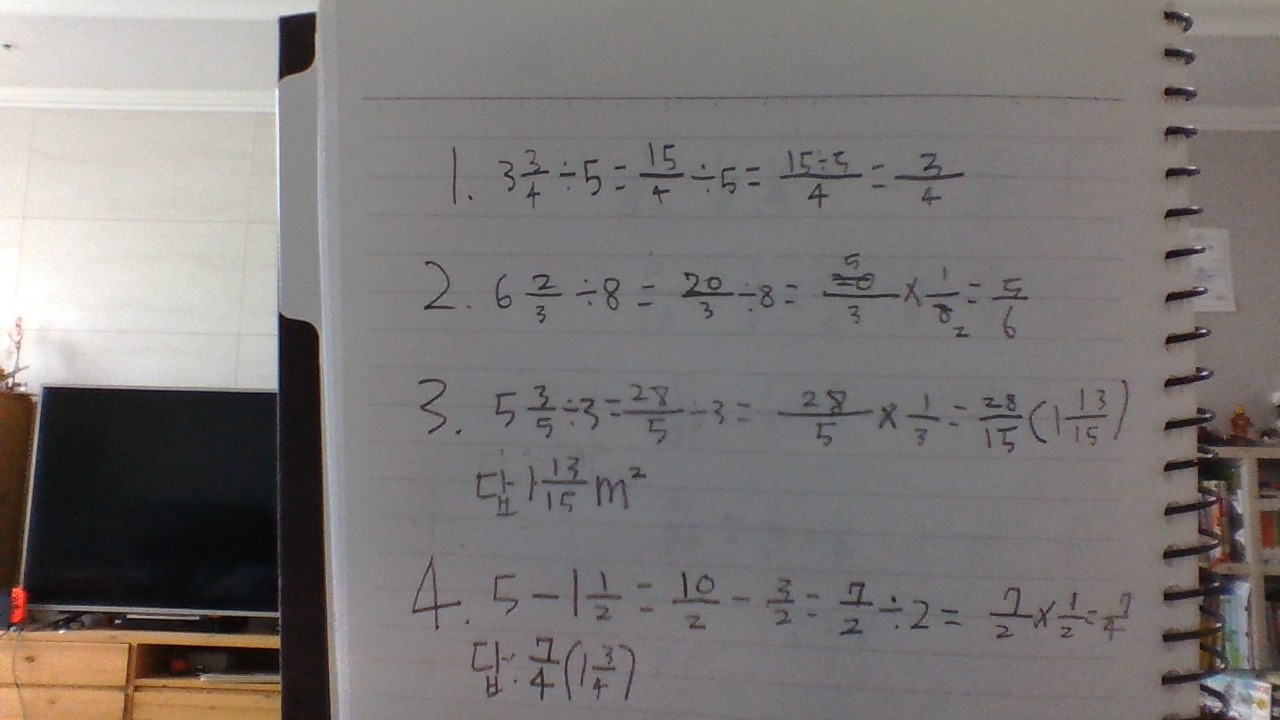 1. 3 3/4 ÷ 5 = 15/4 ÷ 5 = 15÷5/4 = 3/4
2. 6 2/3 ÷ 8 = 20/3 ÷ 8 = 5 20/3 × 1/8 2 = 5/6
3. 5 3/5 ÷ 3 = 28/5 ÷ 3 = 28/5 × 1/3 = 28/15 (1 13/15)
답 1 13/15 m²
4. 5 - 1 1/2 = 10/2 - 3/2 = 7/2 ÷ 2 = 7/2 × 1/2 = 7/4
답: 7/4 (1 3/4)